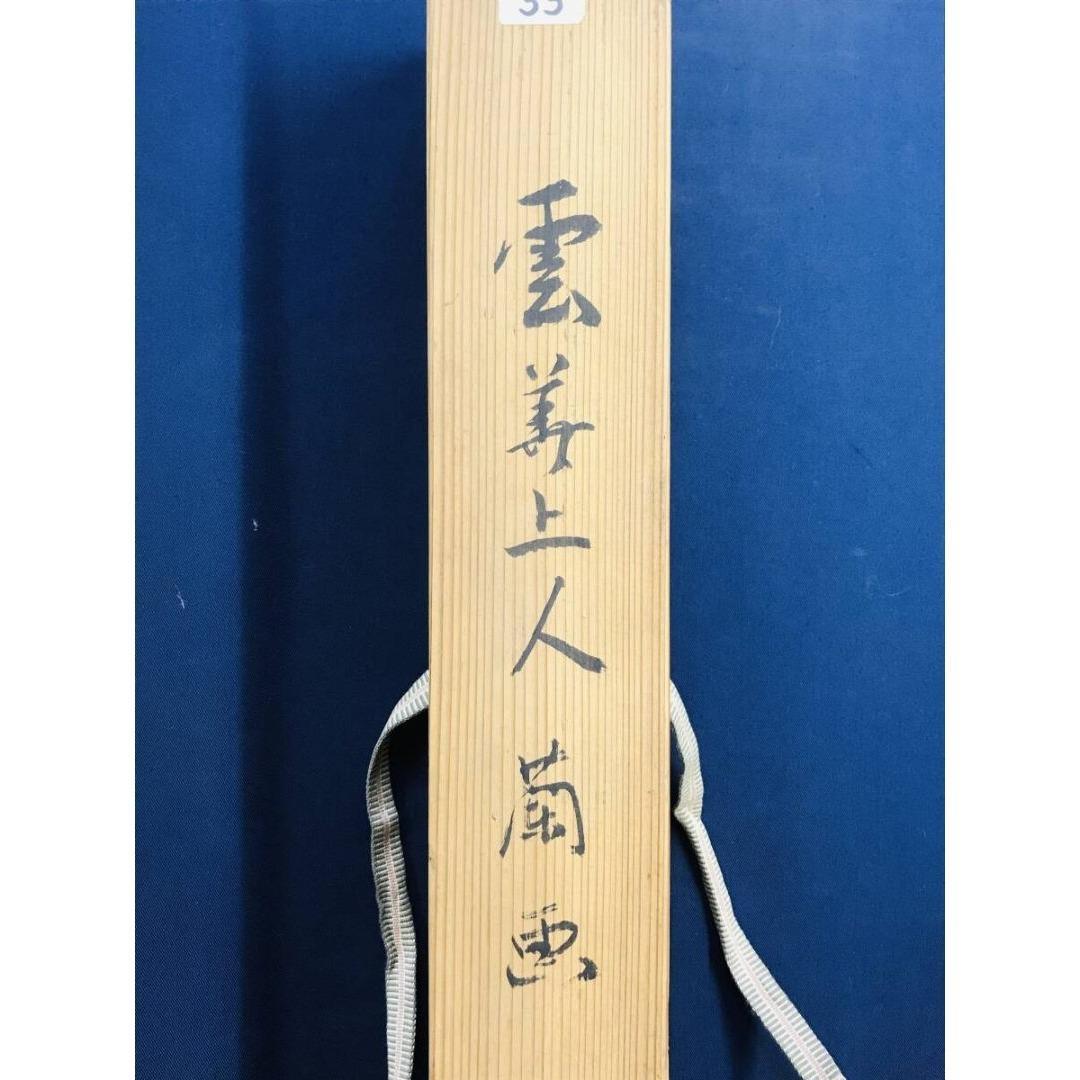 雲華上人蘭画